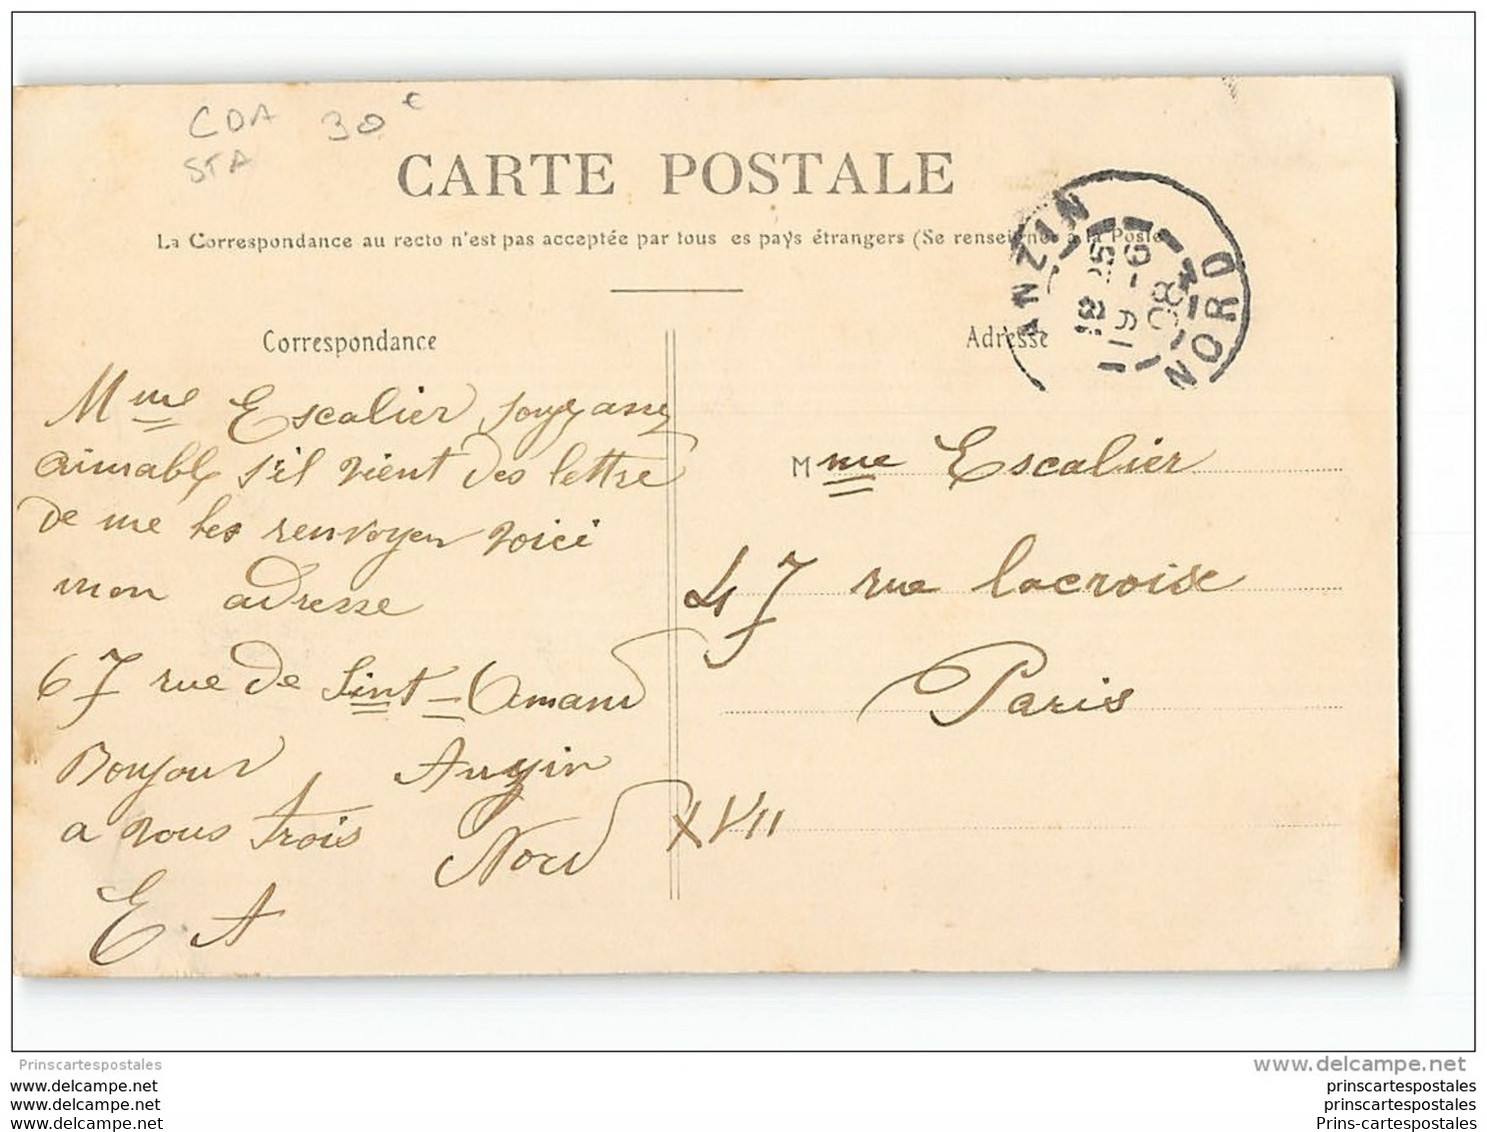 CDA 30€
STA
CARTE POSTALE
La Correspondance au recto n'est pas acceptée par tous es pays étrangers (Se renseigner à la Poste
ANZIN
NORD
Correspondance
Adresse
Mme Escalier soyez assez
aimable s'il vient des lettre
de me les renvoyer voici
mon adresse
67 rue de Sint-Amand
Bonjour Anzin
a vous trois Nord
E A
Mme Escalier
47 rue lacroise
Paris
XVII
Prinscartespostales
www.delcampe.net
www.delcampe.net
www.delcampe.net
www.delcampe.net
prinscartespostales
prinscartespostales
Prins-cartespostales